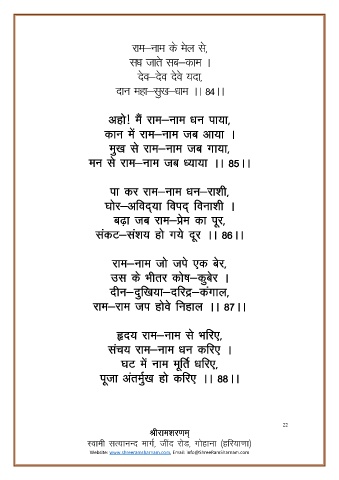 राम–नाम के मेल से,
सध जाते सब–काम ।
देव–देव देवे यदा,
दान महा–सुख–धाम ।। 84।।
अहो! मैं राम–नाम धन पाया,
कान में राम–नाम जब आया ।
मुख से राम–नाम जब गाया,
मन से राम–नाम जब ध्याया ।। 85।।
पा कर राम–नाम धन–राशी,
घोर–अविद्या विपद् विनाशी ।
बढ़ा जब राम–प्रेम का पूर,
संकट–संशय हो गये दूर ।। 86।।
राम–नाम जो जपे एक बेर,
उस के भीतर कोष–कुबेर ।
दीन–दुखिया–दरिद्र–कंगाल,
राम–राम जप होवे निहाल ।। 87।।
हृदय राम–नाम से भरिए,
संचय राम–नाम धन करिए ।
घट में नाम मूर्ति धरिए,
पूजा अंतर्मुख हो करिए ।। 88।।
22
श्रीरामशरणम्
स्वामी सत्यानन्द मार्ग, जींद रोड, गोहाना (हरियाणा)
Website: www.shreeramsharnam.com, Email: info@ShreeRamSharnam.com